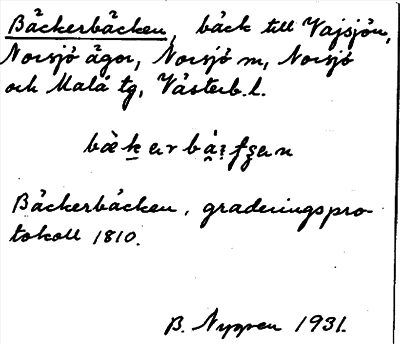 Bäckerbäcken, bäck till Vajsjön,
Norsjö ägor, Norsjö sn, Norsjö
och Malå tg, Västerb. l.
Bäckerbäcken, graderingspro-
tokoll 1810.
B. Nyman 1931.